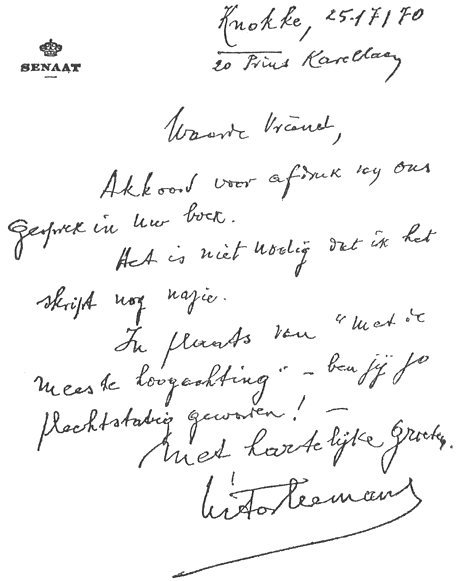 Knokke, 25/7/70
20 Prins Karellaan
SENAAT
Waarde Vriend,
Akkoord voor afdruk van ons
gesprek in Uw boek.
Het is niet nodig dat ik het
skript nog nazie.
In plaats van "Met de
meeste hoogachting" – ben jij zo
plechtstatig geworden! –
Met hartelijke Groeten.
Victor Leemans